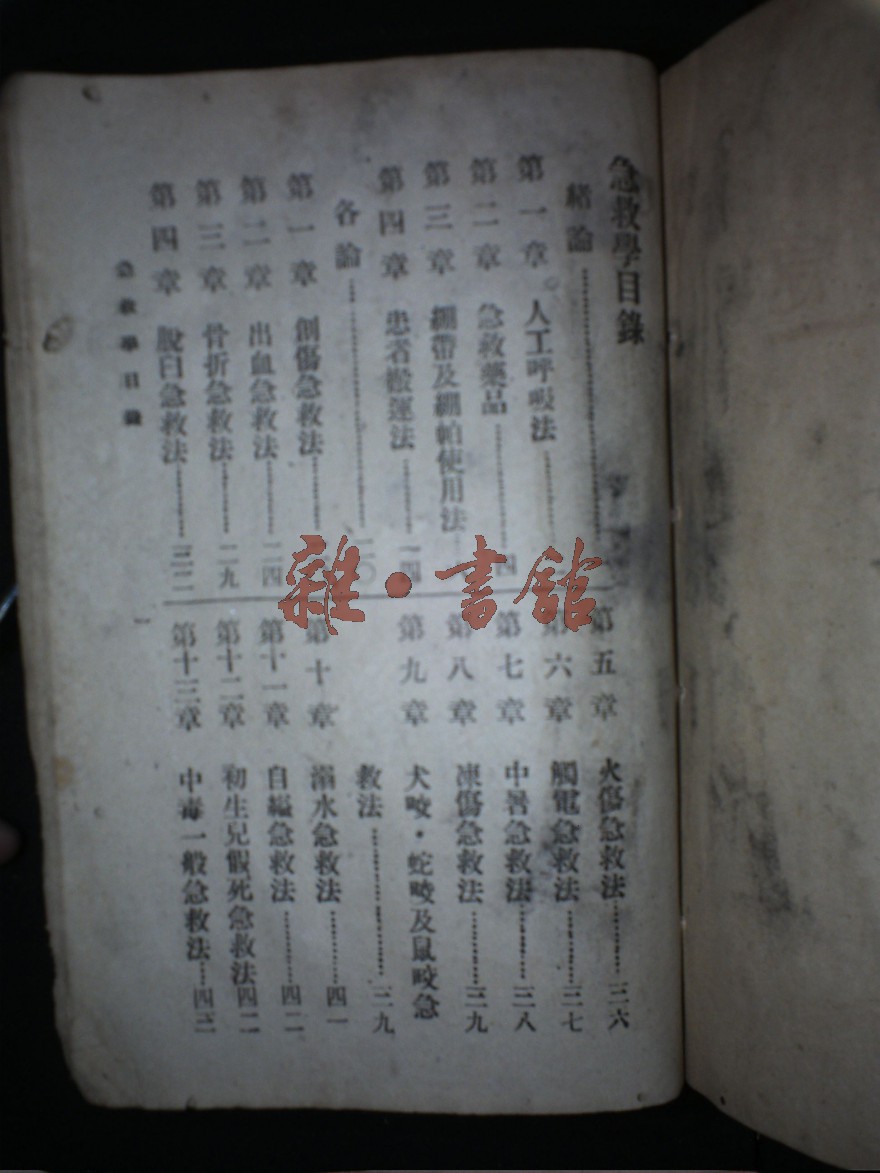 急救學目錄
緒論
第一章 人工呼吸法
第二章 急救藥品……四
第三章 繃帶及繃帕使用法
第四章 患者搬運法……一四
各論……二〇
第一章 創傷急救法
第二章 出血急救法……二四
第三章 骨折急救法……二九
第四章 脫臼急救法……三二
第五章 火傷急救法……三六
第六章 觸電急救法……三七
第七章 中暑急救法……三八
第八章 凍傷急救法……三九
第九章 犬咬・蛇咬及鼠咬急
救法……三九
第十章 溺水急救法……四一
第十一章 自縊急救法……四二
第十二章 初生兒假死急救法四二
第十三章 中毒一般急救法…四三
急救學目錄
一
雜・書館